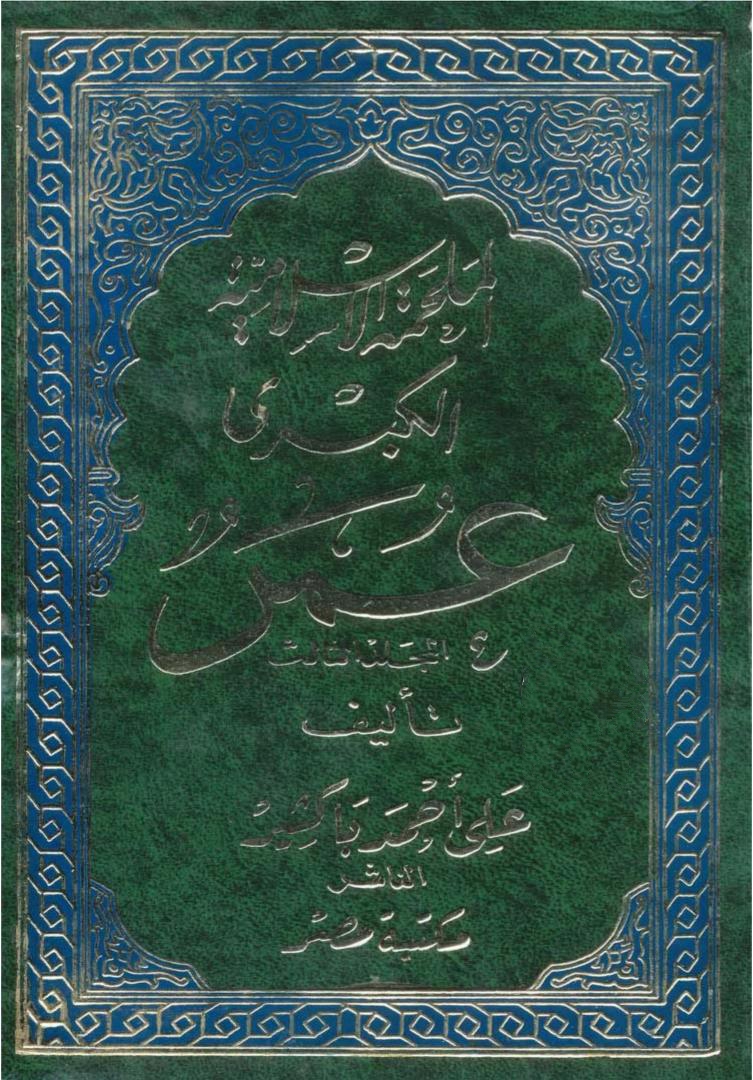 الملحمة الإسلامية
الكبرى
عُمَرُ
المجلد الثالث
تأليف
عَلى أَحْمَد بَاكثِيرْ
الناشر
مكتبة مصر